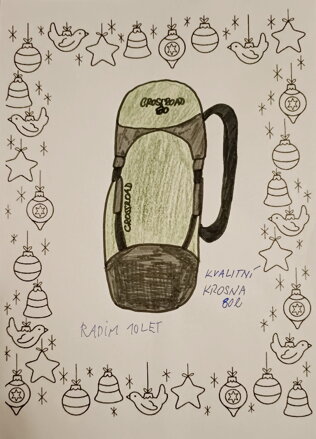 CROSSROAD
80
CROSSROAD
KVALITNÍ
KROSNA
80l
RADIM 10 LET